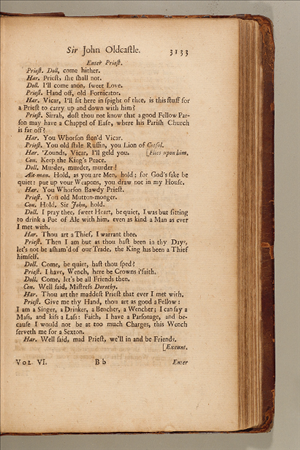 Sir John Oldcastle. 3133
Enter Priest.
Priest. Doll, come hither.
Har. Priest, she shall not.
Doll. I'll come anon, sweet Love.
Priest. Hand off, old Fornicator.
Har. Vicar, I'll sit here in spight of thee, is this stuff for
a Priest to carry up and down with him?
Priest. Sirrah, dost thou not know that a good Fellow Par-
son may have a Chappel of Ease, where his Parish Church
is far off?
Har. You Whorson Vicar.
Priest. You old stale Ruffin, you Lion of
Har. 'Zounds, Vicar, I'll geld you. [Flies upon him.
Con. Keep the King's Peace.
Doll. Murder, murder, murder!
Ale-man. Hold, as you are Men, hold; for God's sake be
quiet: put up your Weapons, you draw not in my House.
Har. You Whorson Bawdy Priest.
Priest. You old Mutton-monger.
Con. Hold, Sir John, hold.
Doll. I pray thee, sweet Heart, be quiet, I was but sitting
to drink a Pot of Ale with him, even as kind a Man as ever
I met with.
Har. Thou art a Thief, I warrant thee.
Priest. Then I am but as thou hast been in thy Days,
let's not be asham'd of our Trade, the King has been a Thief
himself.
Doll. Come, be quiet, hast thou sped?
Priest. I have, Wench, here be Crowns i'faith.
Doll. Come, let's be all Friends then.
Con. Well said, Mistress Dorothy.
Har. Thou art the maddest Priest that ever I met with.
Priest. Give me thy Hand, thou art as good a Fellow:
I am a Singer, a Drinker, a Bencher, a Wencher; I can say a
Mass, and kiss a Lass: Faith, I have a Parsonage, and be-
cause I would not be at too much Charges, this Wench
serveth me for a Sexton.
Har. Well said, mad Priest, we'll in and be Friends.
[Exeunt.
Vol. VI. B b Enter